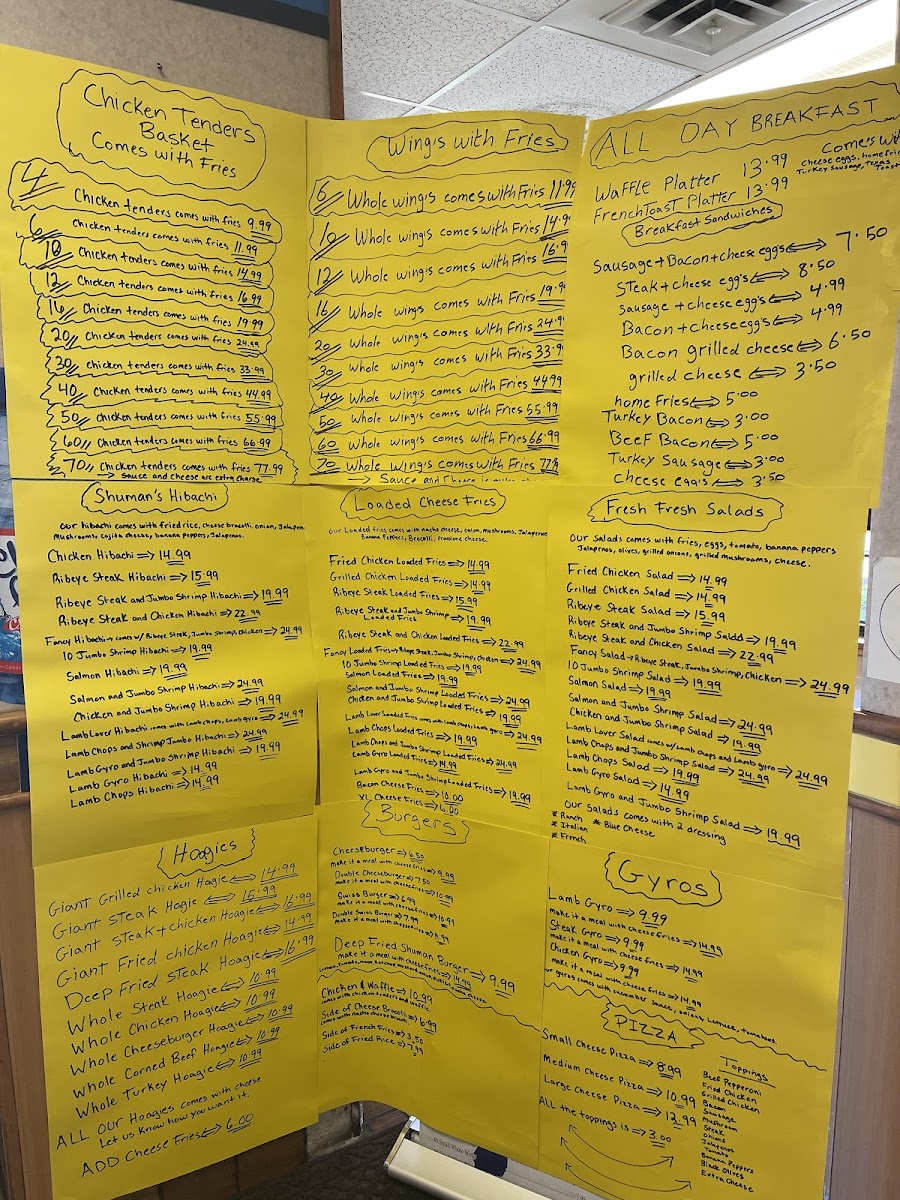 Chicken Tenders
Basket
Comes with Fries
4 Chicken tenders comes with fries 9.99
6 Chicken tenders comes with fries 11.99
10 Chicken tenders comes with fries 14.99
12 Chicken tenders comes with fries 16.99
16 Chicken tenders comes with fries 19.99
20 Chicken tenders comes with fries 24.99
30 Chicken tenders comes with fries 33.99
40 Chicken tenders comes with fries 44.99
50 Chicken tenders comes with fries 55.99
60 Chicken tenders comes with fries 66.99
70 Chicken tenders comes with fries 77.99
→ Sauce and cheese are extra charge
Wing's with Fries
6 Whole wing's comes with Fries 11.99
10 Whole wing's comes with Fries 14.9
12 Whole wing's comes with Fries 16.9
16 Whole wing's comes with Fries 19.9
20 Whole wing's comes with Fries 24.9
30 Whole wing's comes with Fries 33.9
40 Whole wing's comes with Fries 44.99
50 Whole wing's comes with Fries 55.99
60 Whole wing's comes with Fries 66.99
70 Whole wing's comes with Fries 77.9
→ Sauce and Cheese is
ALL DAY BREAKFAST
Comes wit
cheese eggs, home frie
Turkey Sausage, Texas
Toast
Waffle Platter 13.99
French Toast Platter 13.99
Breakfast Sandwiches
Sausage + Bacon + cheese egg's ⇔ 7.50
Steak + cheese egg's ⇔ 8.50
Sausage + cheese egg's ⇔ 4.99
Bacon + cheese egg's ⇔ 4.99
Bacon grilled cheese ⇔ 6.50
grilled cheese ⇔ 3.50
home Fries ⇔ 5.00
Turkey Bacon ⇔ 3.00
Beef Bacon ⇔ 5.00
Turkey Sausage ⇔ 3.00
cheese egg's ⇔ 3.50
Shuman's Hibachi
our hibachi comes with fried rice, cheese brocolli, onion, Jalapen
Mushrooms, cojita cheese, banana peppers, Jalapenos.
Chicken Hibachi ⇒ 14.99
Ribeye Steak Hibachi ⇒ 15.99
Ribeye Steak and Jumbo Shrimp Hibachi ⇒ 19.99
Ribeye Steak and Chicken Hibachi ⇒ 22.99
Fancy Hibachi → comes w/ Ribeye Steak, Jumbo Shrimp, Chicken ⇒ 24.99
10 Jumbo Shrimp Hibachi ⇒ 19.99
Salmon Hibachi ⇒ 19.99
Salmon and Jumbo Shrimp Hibachi ⇒ 24.99
Chicken and Jumbo Shrimp Hibachi ⇒ 19.99
Lamb Lover Hibachi comes with Lamb Chops, Lamb gyro ⇒ 24.99
Lamb Chops and Shrimp Jumbo Hibachi ⇒ 24.99
Lamb Gyro and Jumbo Shrimp Hibachi ⇒ 19.99
Lamb Gyro Hibachi ⇒ 14.99
Lamb Chops Hibachi ⇒ 14.99
Loaded Cheese Fries
our Loaded fries comes with nacho cheese, onion, mushrooms, Jalapenos
Banana Peppers, Brocolli, provolone cheese.
Fried Chicken Loaded Fries ⇒ 14.99
Grilled Chicken Loaded Fries ⇒ 14.99
Ribeye Steak Loaded Fries ⇒ 15.99
Ribeye Steak and Jumbo Shrimp
Loaded Fries ⇒ 19.99
Ribeye Steak and Chicken Loaded Fries ⇒ 22.99
Fancy Loaded Fries → Ribeye Steak, Jumbo Shrimp, Chicken ⇒ 24.99
10 Jumbo Shrimp Loaded Fries ⇒ 19.99
Salmon Loaded Fries ⇒ 19.99
Salmon and Jumbo Shrimp Loaded Fries ⇒ 24.99
Chicken and Jumbo Shrimp Loaded Fries ⇒ 19.99
Lamb Lover Loaded Fries comes with lamb chops, lamb gyro ⇒ 24.99
Lamb Chops Loaded Fries ⇒ 19.99
Lamb Chops and Jumbo Shrimp Loaded Fries ⇒ 24.99
Lamb Gyro Loaded Fries ⇒ 14.99
Lamb Gyro and Jumbo Shrimp Loaded Fries ⇒ 19.99
Bacon Cheese Fries ⇒ 10.00
XL Cheese Fries ⇒ 6.00
Fresh Fresh Salads
Our Salads comes with fries, eggs, tomato, banana peppers
Jalapenos, olives, grilled onions, grilled mushrooms, cheese.
Fried Chicken Salad ⇒ 14.99
Grilled Chicken Salad ⇒ 14.99
Ribeye Steak Salad ⇒ 15.99
Ribeye Steak and Jumbo Shrimp Saldd ⇒ 19.99
Ribeye Steak and Chicken Salad ⇒ 22.99
Fancy Salad → Ribeye Steak, Jumbo Shrimp, Chicken ⇒ 24.99
10 Jumbo Shrimp Salad ⇒ 19.99
Salmon Salad ⇒ 19.99
Salmon and Jumbo Shrimp Salad ⇒ 24.99
Chicken and Jumbo Shrimp Salad ⇒ 19.99
Lamb Lover Salad comes w/ Lamb Chops and Lamb gyro ⇒ 24.99
Lamb Chops and Jumbo Shrimp Salad ⇒ 24.99
Lamb Chops Salad ⇒ 19.99
Lamb Gyro Salad ⇒ 14.99
Lamb Gyro and Jumbo Shrimp Salad ⇒ 19.99
Our Salads comes with 2 dressing
* Ranch * Blue Cheese
* Italian
* French
Hoagies
Giant Grilled chicken Hoagie ⇔ 14.99
Giant Steak Hogie ⇔ 15.99
Giant Steak + chicken Hoagie ⇔ 16.99
Giant Fried chicken Hoagie ⇔ 14.99
Deep Fried Steak Hoagie ⇔ 16.99
Whole Steak Hoagie ⇔ 10.99
Whole Chicken Hoagie ⇔ 10.99
Whole Cheeseburger Hoagie ⇔ 10.99
Whole Corned Beef Hoagie ⇔ 10.99
Whole Turkey Hoagie ⇔ 10.99
ALL Our Hoagies comes with cheese
Let us know how you want it.
ADD Cheese Fries ⇔ 6.00
Burgers
Cheeseburger ⇒ 6.50
make it a meal with cheese fries ⇒ 9.99
Double Cheeseburger ⇒ 7.50
make it a meal with cheese fries ⇒ 10.99
Swiss Burger ⇒ 6.99
make it a meal with cheese fries ⇒ 10.99
Double Swiss Burger ⇒ 7.99
make it a meal with cheese fries ⇒ 11.99
Deep Fried Shuman Burger ⇒ 9.99
make it a meal with cheese fries ⇒ 14.99
Chicken & Waffle ⇒ 10.99
comes with chicken tenders and waffle.
Side of Cheese Brocolli ⇒ 6.99
comes with nacho cheese brocolli
Side of French Fries ⇒ 3.50
Side of Fried Rice ⇒ 7.99
Gyros
Lamb Gyro ⇒ 9.99
make it a meal with cheese fries ⇒ 14.99
Steak Gyro ⇒ 9.99
make it a meal with cheese fries ⇒ 14.99
Chicken Gyro ⇒ 9.99
make it a meal with cheese fries ⇒ 14.99
ur gyros comes with cucumber sauce, onions, lettuce, tomatoes.
PIZZA
Small Cheese Pizza ⇒ 8.99
Medium Cheese Pizza ⇒ 10.99
Large Cheese Pizza ⇒ 12.99
ALL the toppings is ⇒ 3.00
Toppings
Beef Pepperoni
Fried Chicken
Grilled Chicken
Bacon
Sausage
Mushroom
Steak
Onions
Jalapenos
Tomato
Banana Peppers
Black Olives
Extra Cheese